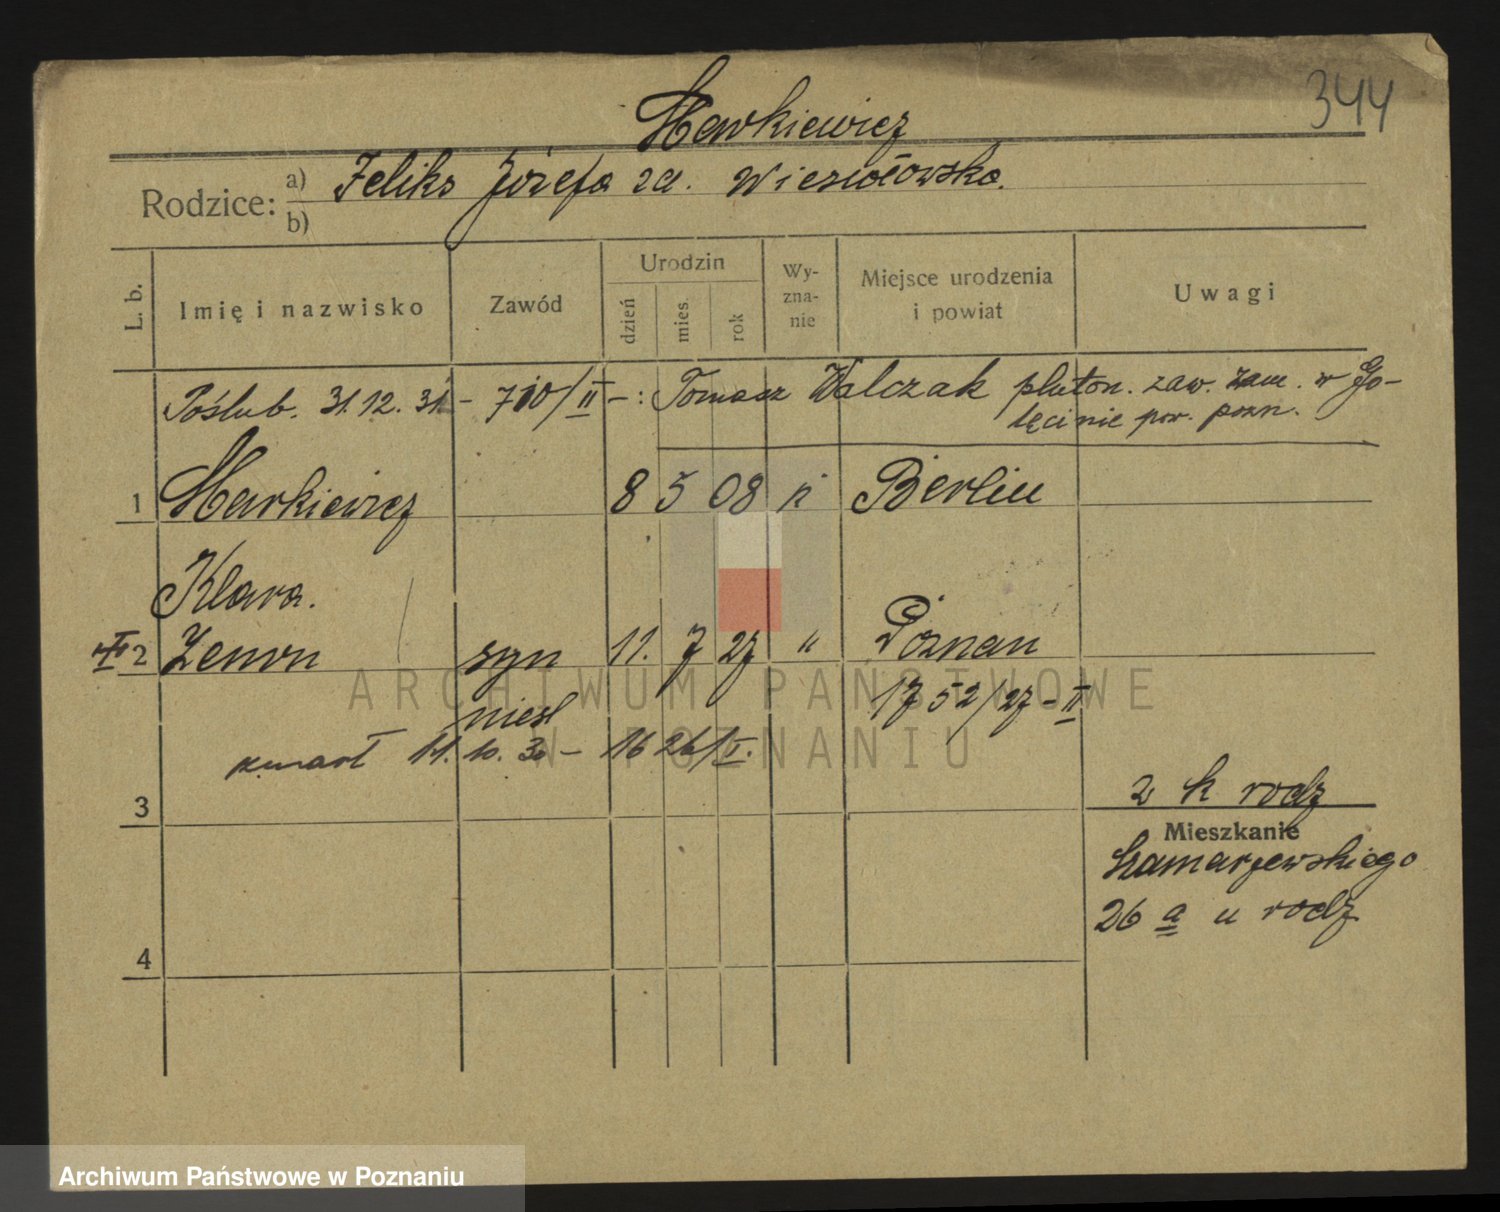 344
Markiewicz
Rodzice: a) Feliks Józefa zd. Wiesiołowska.
b)
L. b. Imię i nazwisko Zawód Urodzin dzień mies. rok Wyzna-nie Miejsce urodzenia i powiat Uwagi
Poślub. 31.12.31 – 710/II – : Tomasz Walczak pluton. zaw. zam. w Go-
lęcinie pow. pozn.
1 Markiewicz 8 5 08 k Berlin
Klara.
2 Zenon syn 11. 7 27 " Poznań
niesl 1752/27 – II
zmarł 11. 10. 30 – 1626/II.
3
z k rodz
Mieszkanie
Szamarzewskiego
26 a u rodz
4
ARCHIWUM PAŃSTWOWE
W POZNANIU
Archiwum Państwowe w Poznaniu